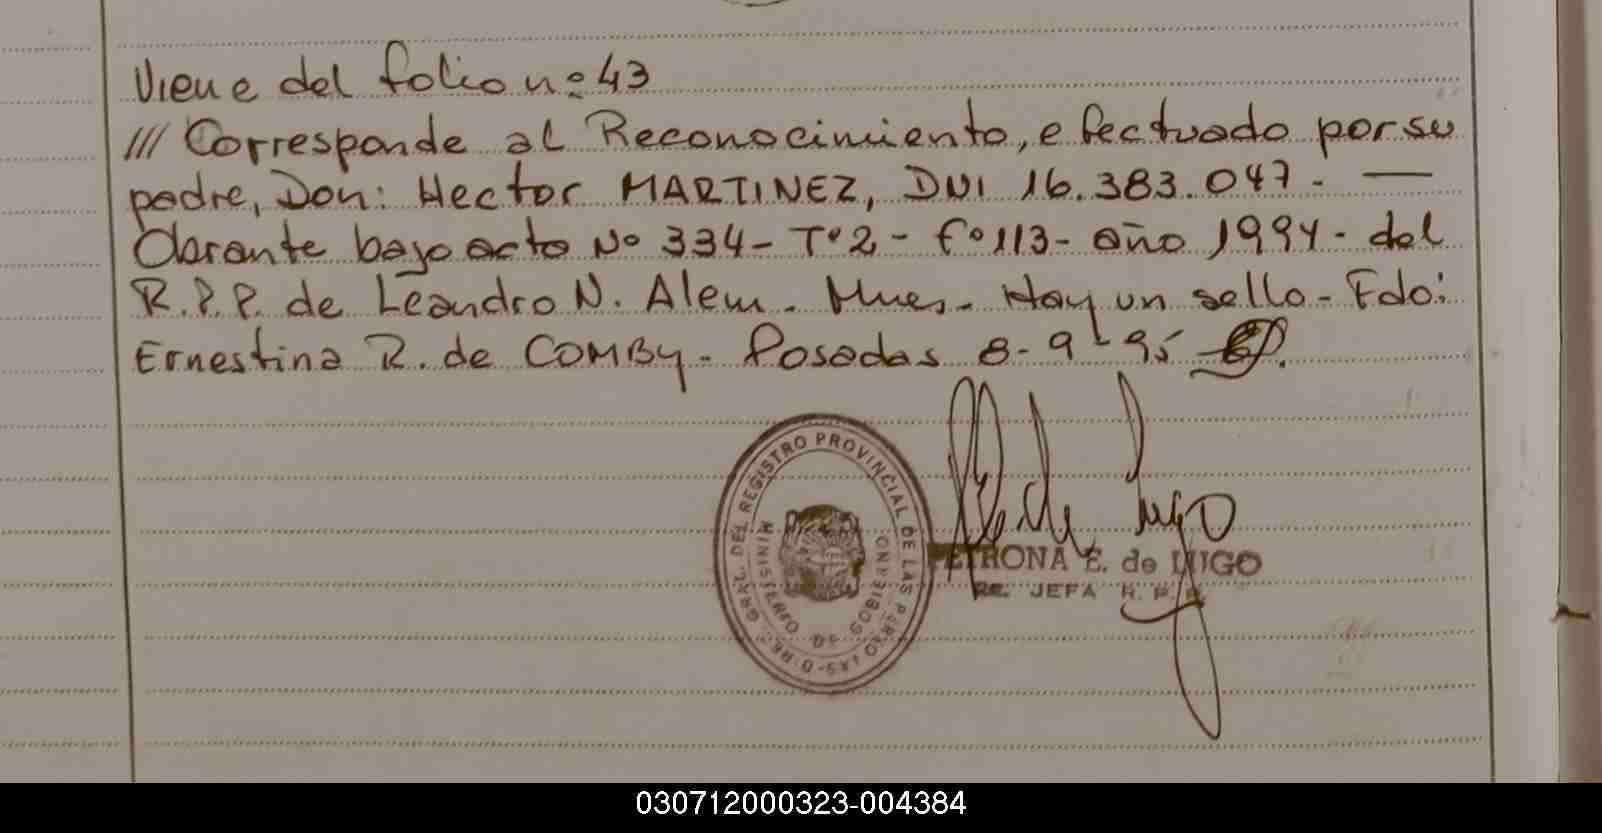 Viene del folio nº 43
/// Corresponde al Reconocimiento, efectuado por su
padre, Don: Hector MARTINEZ, DNI 16.383.047. —
Obrante bajo acta Nº 334 - Tº 2 - Fº 113 - año 1994 - del
R.P.P. de Leandro N. Alem. Mnes. Hay un sello - Fdo:
Ernestina R. de COMBY. Posadas 8-9-95
GRAL. DEL REGISTRO PROVINCIAL DE LAS PERSONAS
MINISTERIO DE GOBIERNO
PETRONA E. de LUGO
JEFA R. P. P.
030712000323-004384